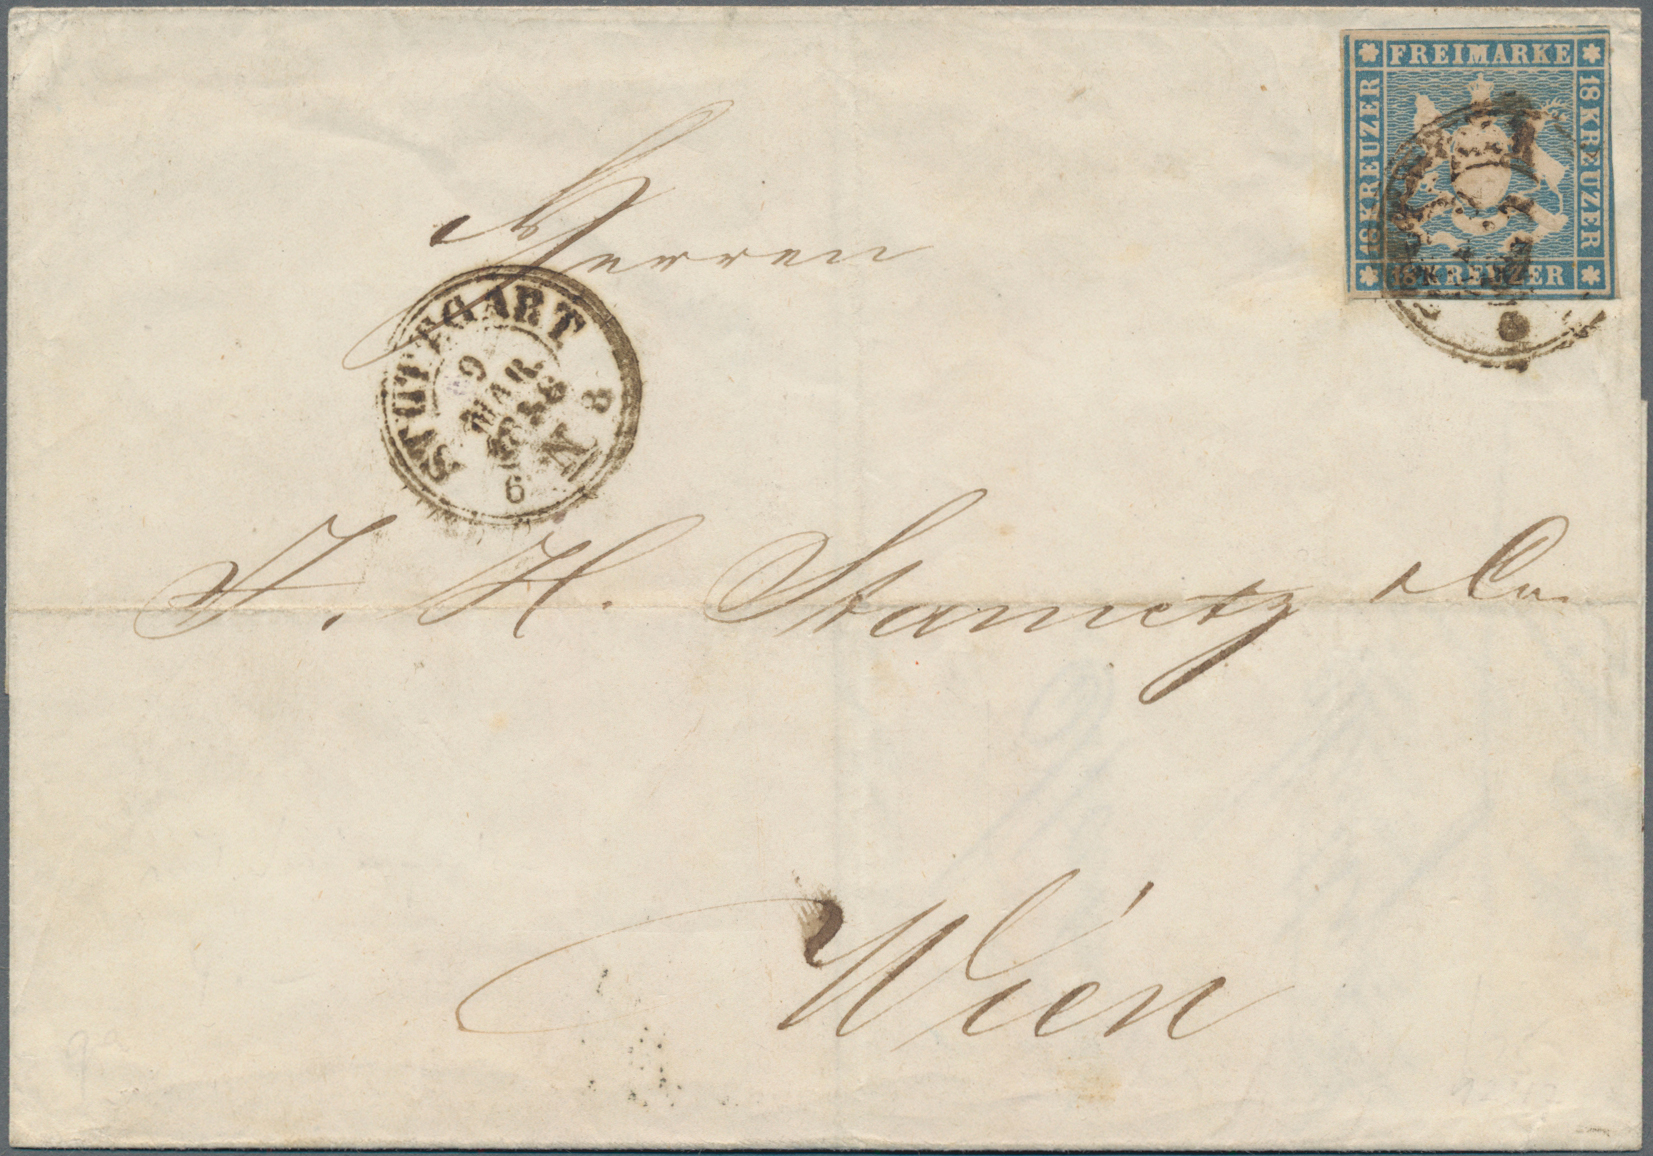 FREIMARKE
18 KREUZER
18 KREUZER
18 KREUZER
Herren
STUTTGART
MAR
N 8
6
J. H. Stametz & Co.
Wien